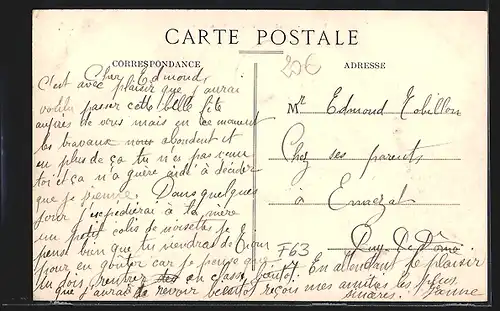 CARTE POSTALE
CORRESPONDANCE
ADRESSE
20€
Cher Edmond,
C'est avec plaisir que j'aurai
voulu passer cette belle fête
auprès de vous mais en ce moment
les travaux nous abondent et
en plus de ça tu n'es pas venu
toi et ça n'a guère aidé à décider
que je vienne. Dans quelques
jours j'expédierai à la mère
un petit colis de noisettes je
pense bien que tu viendras de
pour en goûter car je pense que
tu dois rentrer en classe
que j'aurai de revoir bientôt
En attendant le plaisir
reçois mes amitiés les plus
sincères. Jeanne
Mr Edmond
Chez ses parents
à
Puy-de-Dôme
F63